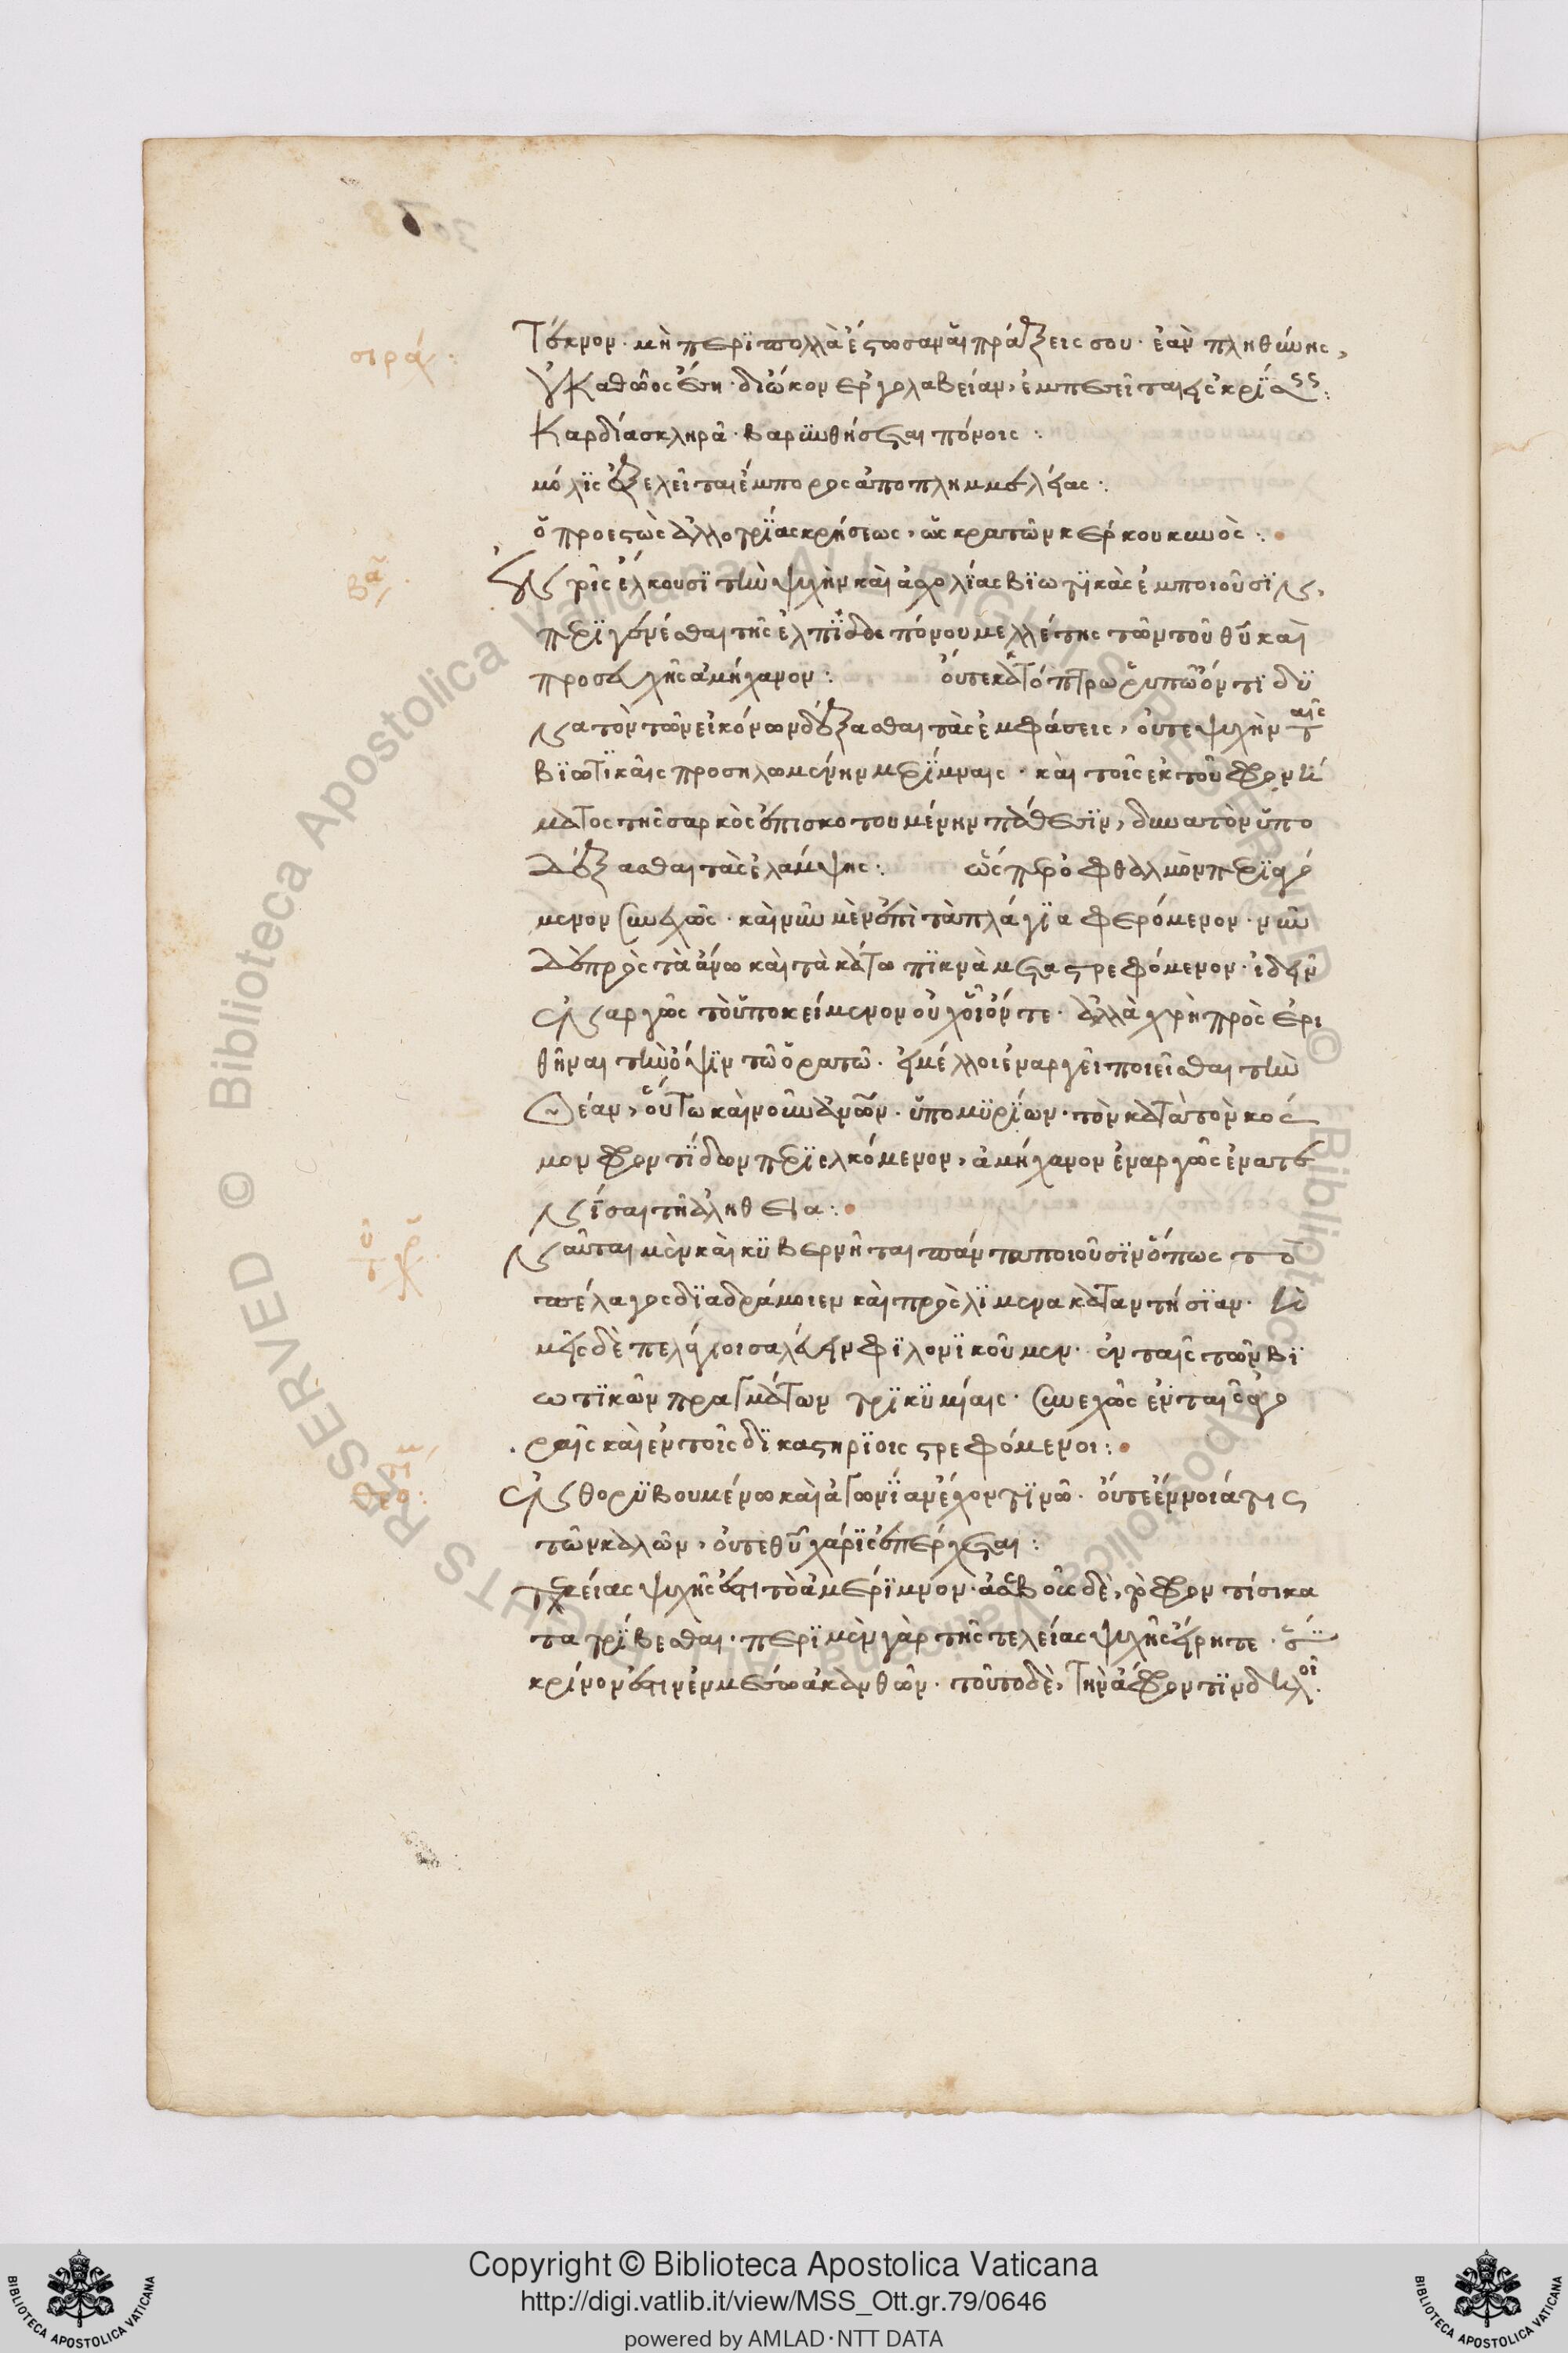 σιρά:
Τέκνον· μὴ περὶ πολλὰ ἔστωσαν αἱ πράξεις σου· ἐὰν πληθύνης,
οὐκ ἀθῶος ἔση· διῶκον ἐργολαβείαν, ἐμπεσεῖται εἰς κρίσεις:
Καρδία σκληρὰ· βαρυνθήσεται πόνοις:
μόλις ἐξελεῖται ἔμπορος ἀπο πλημμελείας:
ὁ προεστὼς ἀλλοτρίας κρήσεως, ὡς κρατῶν κερκου κυνὸς:
βα
ἕλκουσι τὴν ψυχὴν καὶ ἀσχολίας βιωτικὰς ἐμποιοῦσιν,
περιγενέσθαι τῆς ἐλπιδος πόνου μελλέτης τῶν τοῦ θῦ καὶ
προσευχῆς ἀμήχανον: οὔτε κατόπτρω ρυπῶοντι δυ
νατὸν τῶν εἰκόνων δέξασθαι τὰς ἐμφάσεις, οὔτε ψυχὴν ταῖς
βιωτικαῖς προσηλωμένην μερίμναις· καὶ τοῖς ἐκ τοῦ φρονή
ματος τῆς σαρκὸς ἐπισκοτουμένην πάθεσιν, δυνατὸν ὑπο
δέξασθαι τὰς ἐλάμψης: ὥσπερ ὀφθαλμὸν περιαγό
μενον συνεχῶς· καὶ νῦν μὲν ἐπὶ τὰ πλάγια φερόμενον· νῦν
δὲ πρὸς τὰ ἄνω καὶ τὰ κάτω πικνὰ μεταστρεφόμενον· ἰδεῖν
ἐναργῶς τὸ ὑποκείμενον οὐχ οἷόν τε· ἀλλὰ χρὴ προσερι
θῆναι τὴν ὄψιν τῶ ὁρατῶ· εἰ μέλλοι ἐναργεῖ ποιεῖσθαι τὴν
θέαν, οὕτω καὶ νοῦν ἀνων· ὑπο μυρίων· τὸν κατὰ τὸν κόσ
μον φροντίδων περιελκόμενον, ἀμήχανον ἐναργῶς ἐνατε
νίσαι τῆ ἀληθεία:
τοῦ χρ
ναῦται μὲν καὶ κυβερνῆται πάντα ποιοῦσιν ὅπως τὸ
πέλαγος διαδράμοιεν καὶ προς λιμένα καταντήσιαν· ἡ
μεῖς δὲ πελάγιοι σαλεύειν φιλονικοῦμεν· ἐν ταῖς τῶν βι
ωτικῶν πραγμάτων τρικυμίαις· συνεχῶς ἐν ταῖς ἀγο
ραῖς καὶ ἐν τοῖς δικαστηρίοις στρεφόμενοι:
θεο:
ἐν θορυβουμένω καὶ ἀγωνίαν ἔχοντι νῶ· οὔτε ἔννοιά τις
τῶν καλῶν, οὔτε θῦ χάρις ἐπέρχεται:
τελείας ψυχῆς ἐστι τὸ ἀμέριμνον· ἀσεβοῦς δὲ, τὸ φροντίσι κα
τατρίβεσθαι· περὶ μὲν γὰρ τῆς τελείας ψυχῆς εἴρητε· ὅτι
κρίνον ἐστιν ἐν μεσω ἀκανθῶν· τοῦτο δὲ, τὴν ἀφροντιν δηλοῖ
Copyright © Biblioteca Apostolica Vaticana
http://digi.vatlib.it/view/MSS_Ott.gr.79/0646
powered by AMLAD·NTT DATA